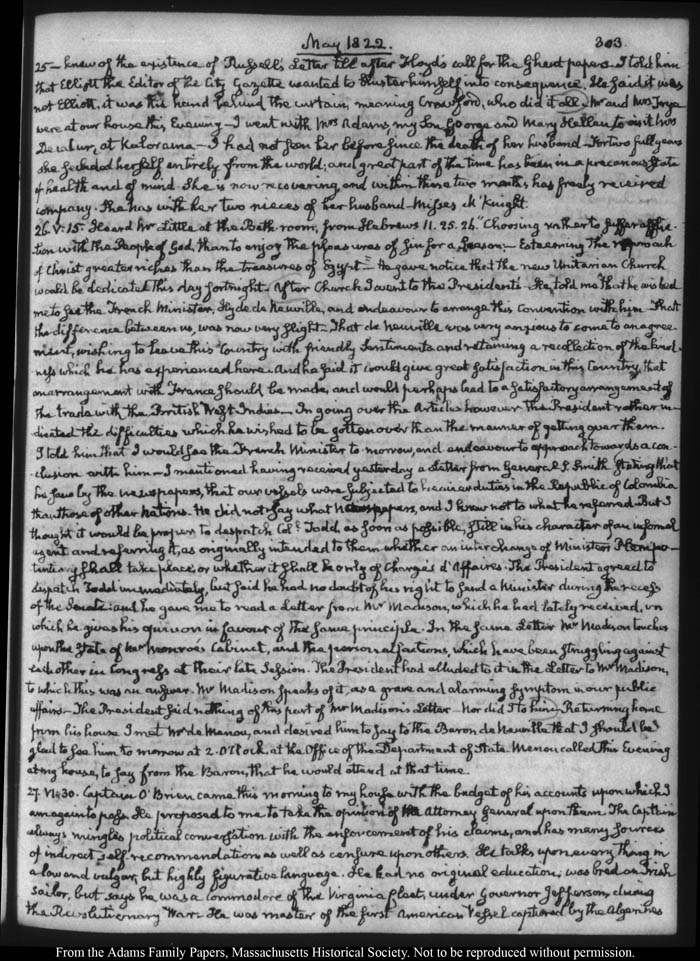 May 1822. 303.
25— knew of the existence of Russell's Letter till after Floyd's call for the Ghent papers. I told him
that Elliott the Editor of the City Gazette wanted to bluster himself into consequence. He said it was
not Elliott, it was the hand behind the curtain, meaning Crawford, who did it all. Mr and Mrs Frye
were at our house this Evening— I went with Mrs Adams, my Son George and Mary Hellen to visit Mrs
Decatur, at Kalorama— I had not seen her before since the death of her husband— For two full years
she secluded herself entirely from the world; and great part of the time has been in a precarious state
of health and of mind. She is now recovering, and within these two months has freely received
company. She has with her two nieces of her husband— Misses McKnight.
26. V:15. Heard Mr Little at the Bath-room, from Hebrews 11. 25. 26. "Choosing rather to suffer afflic-
tion with the People of God, than to enjoy the pleasures of Sin for a Season;— Esteeming the reproach
of Christ greater riches than the treasures of Egypt"— He gave notice that the new Unitarian Church
would be dedicated this day fortnight. After Church I went to the President's. He told me that he wished
me to see the French Minister, Hyde de Neuville, and endeavour to arrange this Convention with him— That
the difference between us, was now very slight. That de Neuville was very anxious to come to an agree-
ment, wishing to leave this Country with friendly Sentiments and retaining a recollection of the kind-
ness which he has experienced here. And he said it would give great satisfaction in this Country, that
an arrangement with France should be made, and would perhaps lead to a satisfactory arrangement of
the trade with the British West-Indies— In going over the Articles however the President rather in-
dicated the difficulties which he wished to be gotten over than the manner of getting over them.
I told him that I would see the French Minister to-morrow, and endeavour to approach towards a con-
clusion with him— I mentioned having received yesterday a Letter from General S. Smith stating that
he saw by the newspapers, that our vessels were subjected to heavier duties in the Republic of Colombia
than those of other nations. He did not say what newspapers, and I knew not to what he referred. But I
thought it would be proper to despatch Coll. Todd, as soon as possible, still in his character of an informal
agent and referring it, as originally intended to them whether an interchange of Ministers Plenipo-
tentiary shall take place, or whether it shall be only of Chargés d'Affaires. The President agreed to
despatch Todd immediately, but said he had no doubt of his right to send a Minister during the recess
of the Senate: and he gave me to read a Letter from Mr Madison, which he had lately received, in
which he gives his opinion in favour of the same principle. In the same Letter Mr Madison touches
upon the State of Mr Monroe's Cabinet, and the personal factions, which have been struggling against
each other in Congress at their late Session. The President had alluded to it in the Letter to Mr Madison,
to which this was an answer. Mr Madison speaks of it, as a grave and alarming Symptom in our public
affairs— The President said nothing of this part of Mr Madison's Letter— Nor did I to him. Returning home
from his house I met Mr de Menou, and desired him to say to the Baron de Neuville that I should be
glad to see him to morrow at 2. O'Clock, at the Office of the Department of State. Menou called this Evening
at my house, to say from the Baron, that he would attend at that time.
27. 30. Captain O'Brien came this morning to my house with the budget of his accounts upon which I
am again to pass. He proposed to me to take the opinion of the Attorney General upon them. The Captain
always mingles political conversation with the enforcement of his claims, and has many sources
of indirect self recommendation as well as censure upon others. He talks upon every thing in
a low and vulgar, but highly figurative language. He had no original education, was bred an Irish
sailor, but says he was a commodore of the Virginia fleet, under Governor Jefferson, during
the Revolutionary War. He was master of the first American Vessel captured by the Algerines
From the Adams Family Papers, Massachusetts Historical Society. Not to be reproduced without permission.